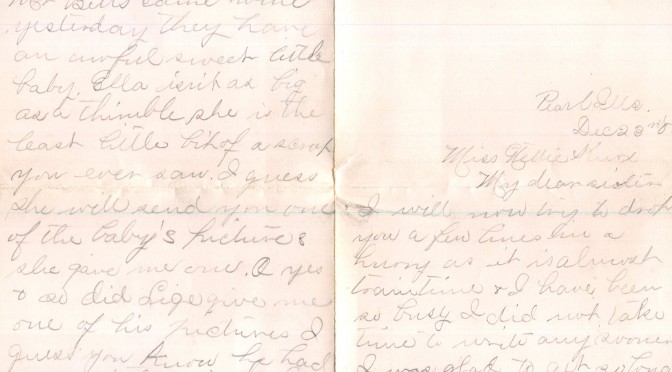 yesterday they have
an awful sweet little
baby. Ella isn't as big
as a thimble she is the
least little bit of a scrap
you ever saw. I guess
she will send you one
of the baby's pictures
she gave me one. O yes
& so did Lige give me
one of his pictures I
guess you know he had
Pearl Ills.
Dec 23
Miss Nellie
My dear sister
I will now try to drop
you a few lines in a
hurry as it is almost
train time & I have been
so busy I did not take
time to write any sooner
I was glad to get